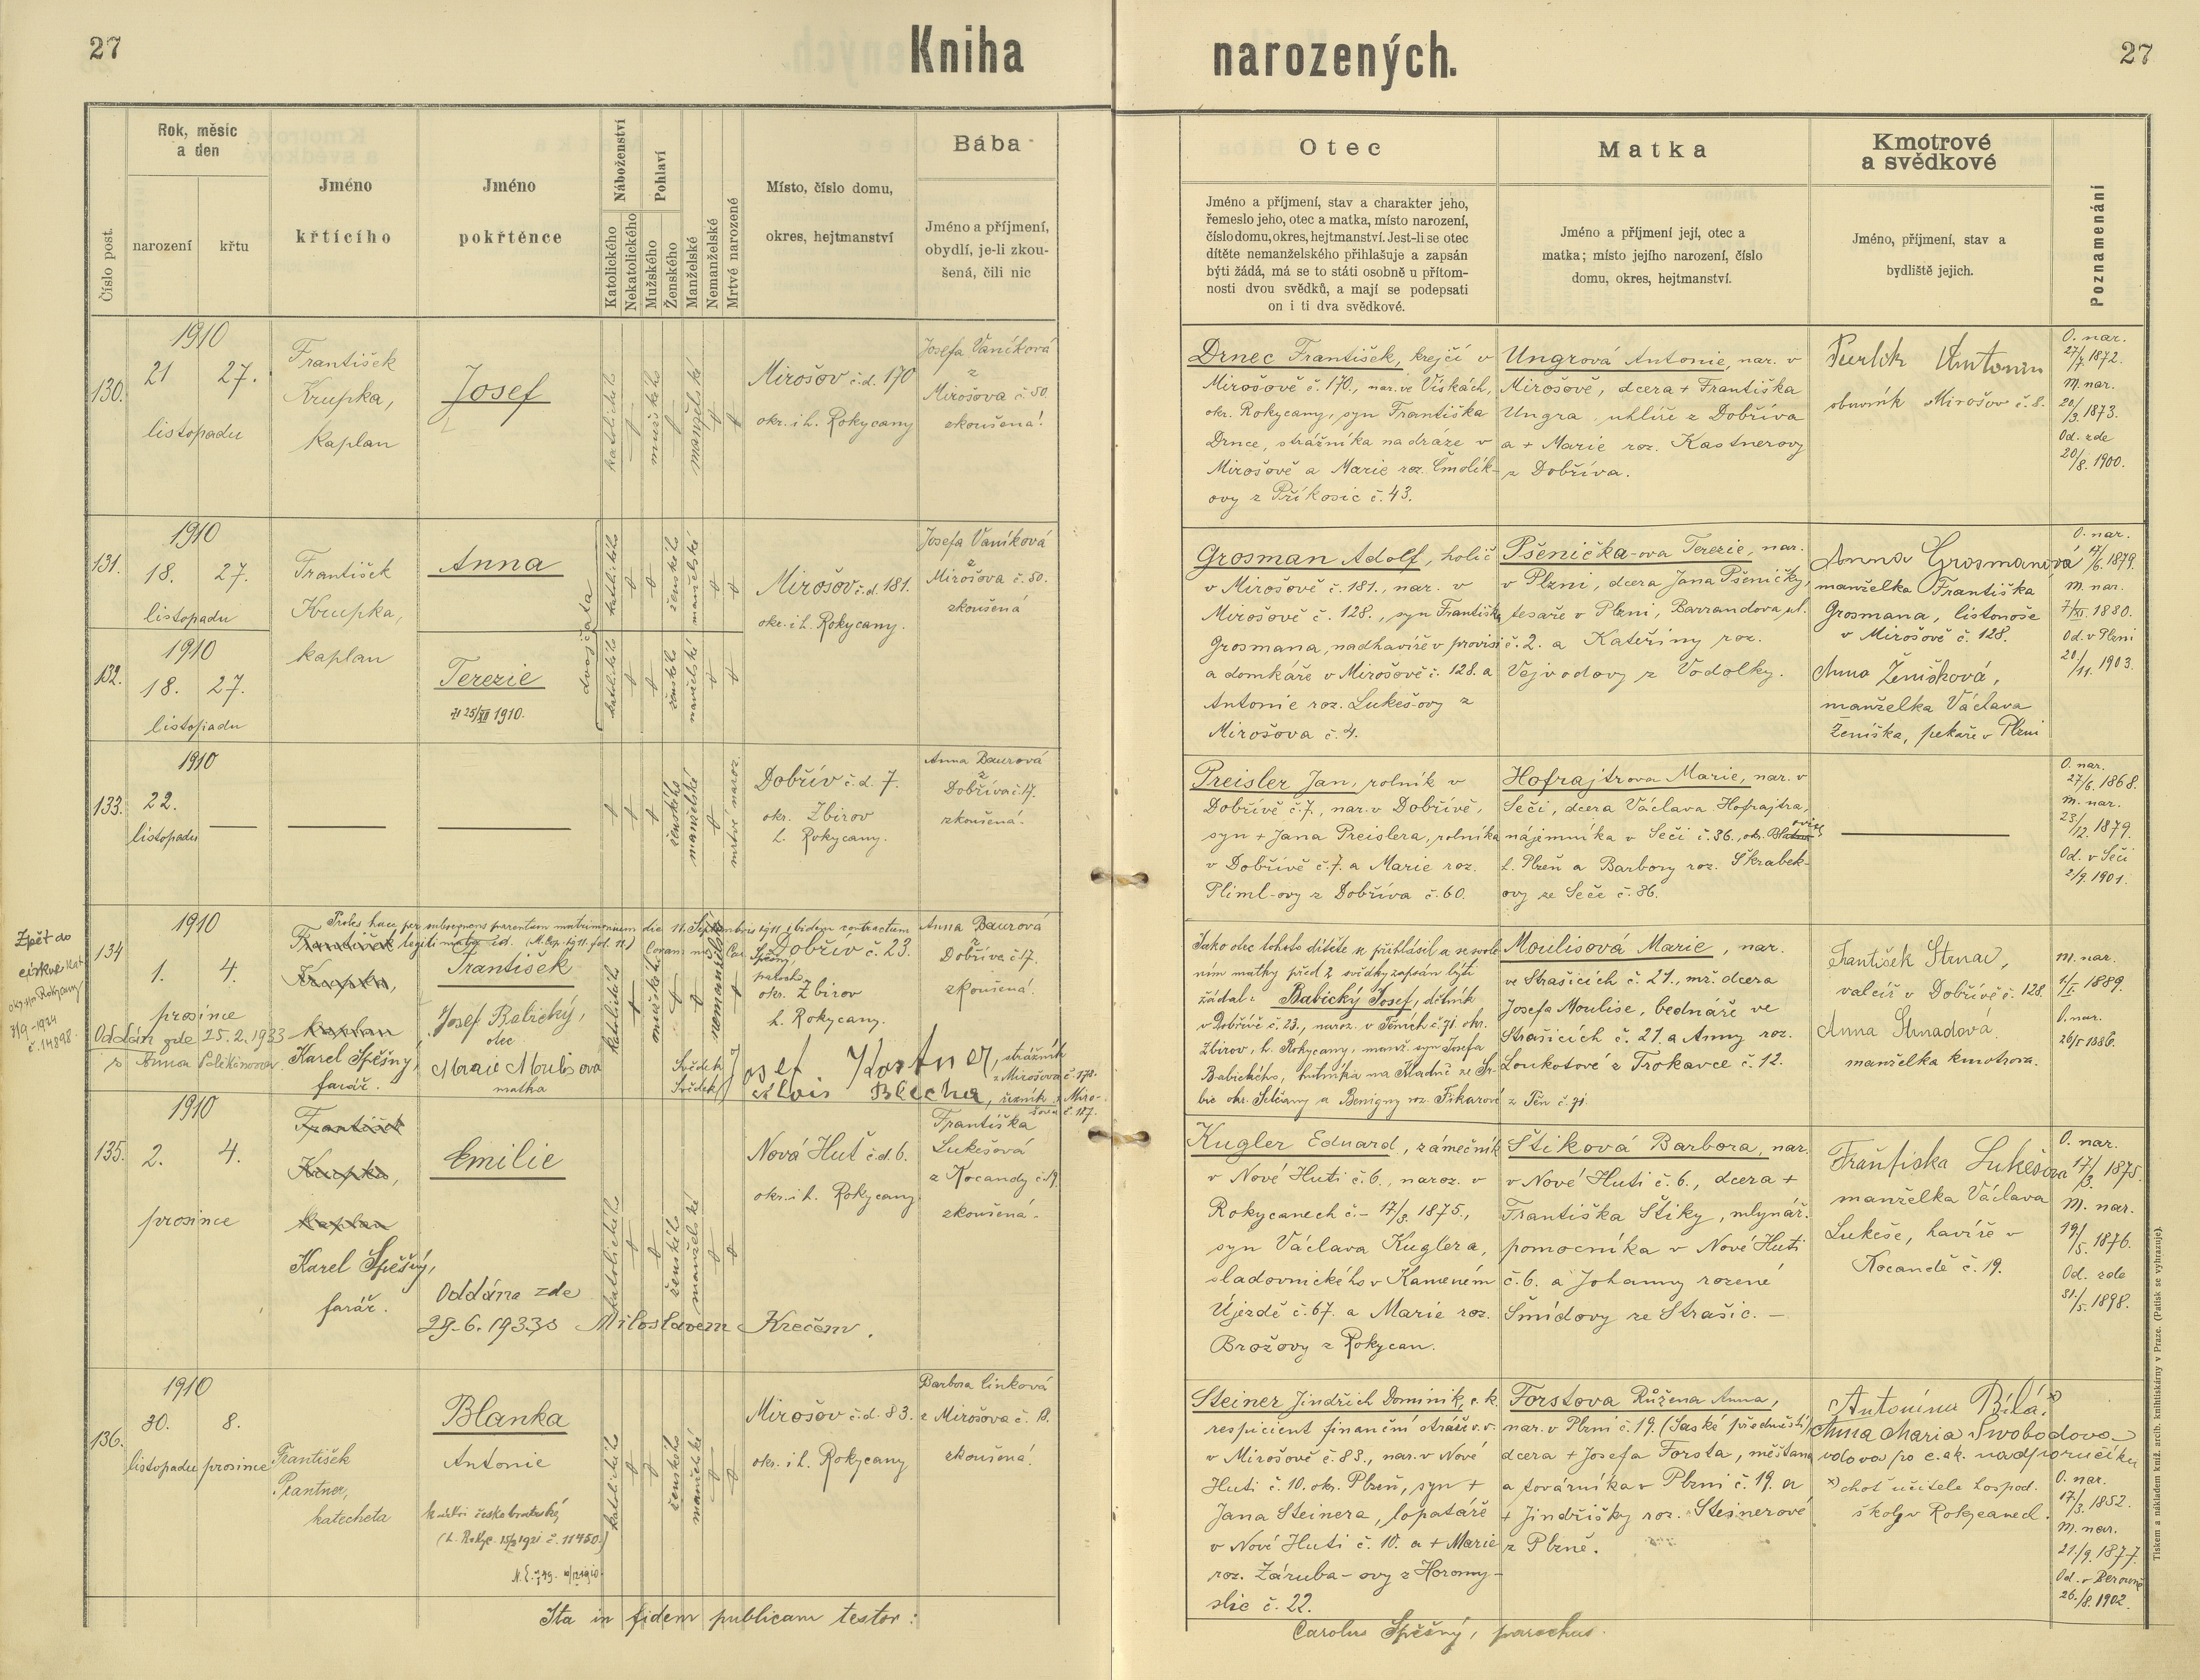 27
Kniha
narozených.
27
Číslo post.
Rok, měsíc
a den
narození
křtu
Jméno
křtícího
Jméno
pokřtěnce
Náboženství
Katolického
Nekatolického
Pohlaví
Mužského
Ženského
Manželské
Nemanželské
Mrtvé narozené
Místo, číslo domu,
okres, hejtmanství
Bába
Jméno a příjmení,
obydlí, je-li zkou-
šená, čili nic
Otec
Jméno a příjmení, stav a charakter jeho,
řemeslo jeho, otec a matka, místo narození,
číslo domu, okres, hejtmanství. Jest-li se otec
dítěte nemanželského přihlašuje a zapsán
býti žádá, má se to státi osobně u přítom-
nosti dvou svědků, a mají se podepsati
on i ti dva svědkové.
Matka
Jméno a příjmení její, otec a
matka; místo jejího narození, číslo
domu, okres, hejtmanství.
Kmotrové
a svědkové
Jméno, příjmení, stav a
bydliště jejich.
Poznamenání
130.
1910
21 27.
listopadu
František
Krupka,
kaplan
Josef
katolického
mužského
manželské
Mirošov č.d. 170
okr. i h. Rokycany
Josefa Vaníková
z
Mirošova č. 50.
zkoušená!
Drnec František, krejčí v
Mirošově č. 170., nar. ve Vískách,
okr. Rokycany, syn Františka
Drnce, strážníka na dráze v
Mirošově a Marie roz. Čmolík-
ovy z Příkosic č. 43.
Ungrová Antonie, nar. v
Mirošově, dcera + Františka
Ungra, uhlíře z Dobříva
a + Marie roz. Kastnerovy
z Dobříva.
Antonín
obuvník Mirošov č. 8.
O. nar.
27/7. 1872.
M. nar.
20/3. 1873.
Od. zde
20/8. 1900.
131.
1910
18. 27.
listopadu
František
Krupka,
kaplan
Anna
dvojčata
katolického
ženského
manželské
Mirošov č.d. 181.
okr. i h. Rokycany.
Josefa Vaníková
z
Mirošova č. 50.
zkoušená
Grosman Adolf, holič
v Mirošově č. 181., nar. v
Mirošově č. 128., syn Františka
Grosmana, nadhavíře v provisi
a domkáře v Mirošově č. 128. a
Antonie roz. Lukeš-ovy z
Mirošova č. 4.
Pšenička-ova Terezie, nar.
v Plzni, dcera Jana Pšeničky,
tesaře v Plzni, Barrandova ul.
č. 2. a Kateřiny roz.
Vejvodovy z Vodolky.
Anna Grosmanová
manželka Františka
Grosmana, listonoše
v Mirošově č. 128.
Anna Ženíšková,
manželka Václava
Ženíška, pekaře v Plzni
O. nar.
17/6. 1879.
M. nar.
7/XI. 1880.
Od. v Plzni
20/11. 1903.
132.
1910
18. 27.
listopadu
Terezie
25/XII 1910.
katolického
ženského
manželské
133.
1910
22.
listopadu
ženského
manželské
mrtvě naroz.
Dobřív č.d. 7.
okr. Zbirov
h. Rokycany.
Anna Baurová
z
Dobříva č. 17.
zkoušená.
Preisler Jan, rolník v
Dobřívě č. 7., nar. v Dobřívě,
syn + Jana Preislera, rolníka
v Dobřívě č. 7. a Marie roz.
Pliml-ovy z Dobříva č. 60.
Hofrajtrova Marie, nar. v
Seči, dcera Václava Hofrajtra,
nájemníka v Seči č. 36., okr.
h. Plzeň a Barbory roz. Škrabek-
ovy ze Seče č. 36.
O. nar.
27/6. 1868.
M. nar.
23/12. 1879.
Od. v Seči
2/9. 1901.
Zpět do
církve kat.
okr. Rokycany
7/9-1924
č. 14898.
134
1910
1. 4.
prosince
Oddán zde 25.2.1933
s Annou
Proles haec per subsequens parentum matrimonium die 11. Septembris 1911 ibidem contractum
legitimata est.
František
Krupka,
kaplan
Karel Spěšný,
farář.
František
Josef Babický,
otec
Marie Moulisová
matka
katolického
mužského
nemanželské
Dobřív č. 23.
okr. Zbirov
h. Rokycany.
Anna Baurová
z
Dobříva č. 17.
zkoušená.
Svědek Josef Kastner, strážník
z Mirošova č. 170.
Svědek Alois Blecha, řezník z Miro-
šova č. 187.
Jako otec tohoto dítěte se přihlásil a se svole
ním matky před 2 svědky zapsán býti
žádal: Babický Josef, dělník
v Dobřívě č. 23., naroz. v Těních č. 91. okr.
Zbirov, h. Rokycany, manž. syn Josefa
Babického, hutníka na Kladně ze Sr-
bie okr. Selčany a Benigny roz. Fikarové
z Těn č. 91.
Moulisová Marie, nar.
ve Strašicích č. 21., mž. dcera
Josefa Moulise, bednáře ve
Strašicích č. 21. a Anny roz.
Loukotové z Trokavce č. 12.
František Strnad,
valcíř v Dobřívě č. 128.
Anna Strnadová
manželka kmotra.
M. nar.
1/I. 1889.
O. nar.
26/5 1886.
135.
1910
2. 4.
prosince
František
Krupka,
kaplan
Karel Spěšný,
farář.
Emilie
Oddána zde
29.6.1933 s Miloslavem Krečem.
katolického
ženského
manželské
Nová Huť č.d. 6.
okr. i h. Rokycany
Františka
Lukešová
z Kocandy č. 19.
zkoušená.
Kugler Eduard, zámečník
v Nové Huti č. 6., naroz. v
Rokycanech č.- 17/3. 1875.,
syn Václava Kuglera,
sladovnického v Kameném
Újezdě č. 67. a Marie roz.
Brožovy z Rokycan.
Štiková Barbora, nar.
v Nové Huti č. 6., dcera +
Františka Štiky, mlynář.
pomocníka v Nové Huti
č. 6. a Johanny rozené
Šmídovy ze Strašic. —
Františka Lukešova
manželka Václava
Lukeše, havíře v
Kocandě č. 19.
O. nar.
17/3. 1875.
M. nar.
19/5. 1876.
Od. zde
31./5. 1898.
136.
1910
30. 8.
listopadu prosince
František
Prantner,
katecheta
Blanka
Antonie
k církvi českobratrské,
(h. Rokyc. 15/3 1921 č. 11450.)
katolického
ženského
manželské
Mirošov č.d. 83.
okr. i h. Rokycany
Barbora Linková
z Mirošova č. 13.
zkoušená!
Steiner Jindřich Dominik, c. k.
respicient finanční stráže v. v.
v Mirošově č. 83., nar. v Nové
Huti č. 10. okr. Plzeň, syn +
Jana Steinera, lopatáře
v Nové Huti č. 10. a + Marie
roz. Záruba-ovy z Horomy-
slic č. 22.
Forstova Růžena Anna,
nar. v Plzni č. 19. (Saské předměstí)
dcera + Josefa Forsta, měšťana
a továrníka v Plzni č. 19. a
+ Jindřišky roz. Steinerové
z Plzně.
Antonína Bílá x)
Anna Maria Swobodova
vdova po c. a k. nadporučíku
x) choť učitele hospod.
školy v Rokycanech.
O. nar.
17./3. 1852.
M. nar.
21./9. 1877.
Od. v Berouně
26./8. 1902.
Ita in fidem publicam testor:
Carolus Spěšný, parochus.
Tiskem a nákladem kníž. arcib. knihtiskárny v Praze. (Patisk se vyhrazuje).